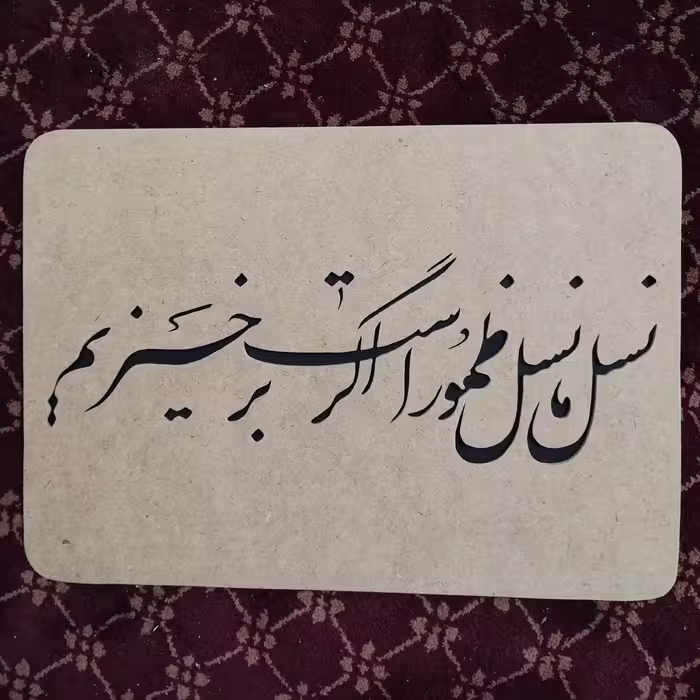 نسل ما نسل ظهور است اگر برخیزیم